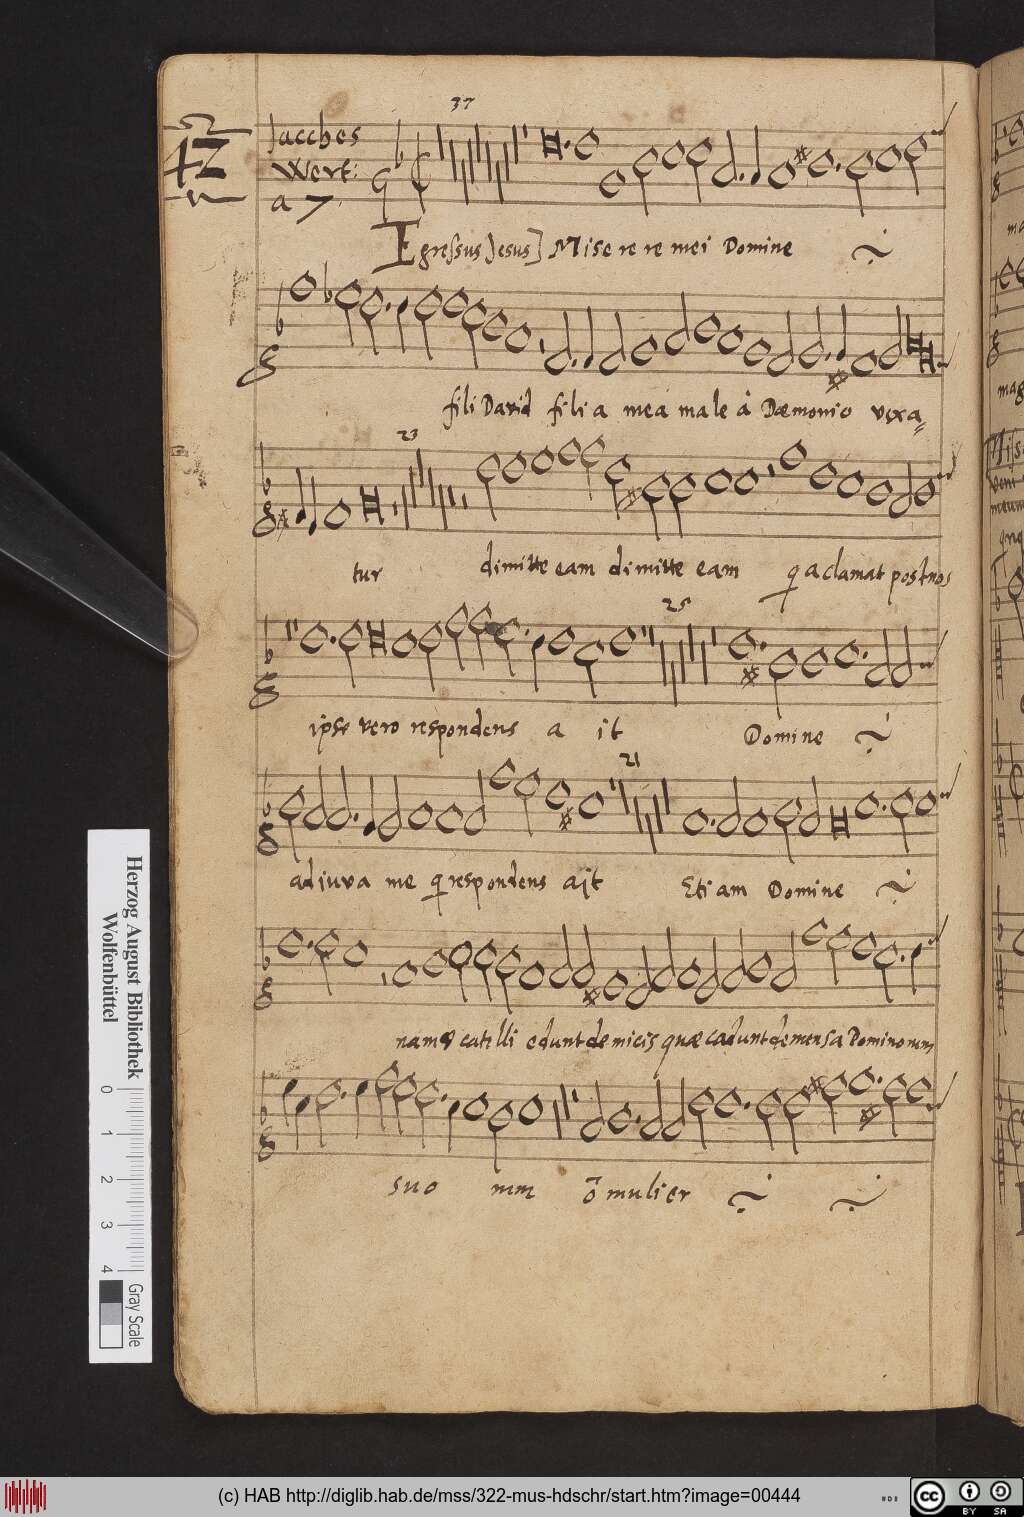 37
42
Jacches
Wert:
a 7.
Egressus Jesus] Misere re mei Domine
fili David filia mea male á Dæmonio vexa=
23
tur dimitte eam dimitte eam q a clamat post nos
25
ipse vero respondens a it Domine
21
adiuva me q respondens ait Etiam Domine
nam & catelli edunt de micis quæ cadunt de mensa Dominorum
suo rum ō mulier
Herzog August Bibliothek
Wolfenbüttel
0 1 2 3 4
Gray Scale
(c) HAB http://diglib.hab.de/mss/322-mus-hdschr/start.htm?image=00444
HAB
cc BY SA